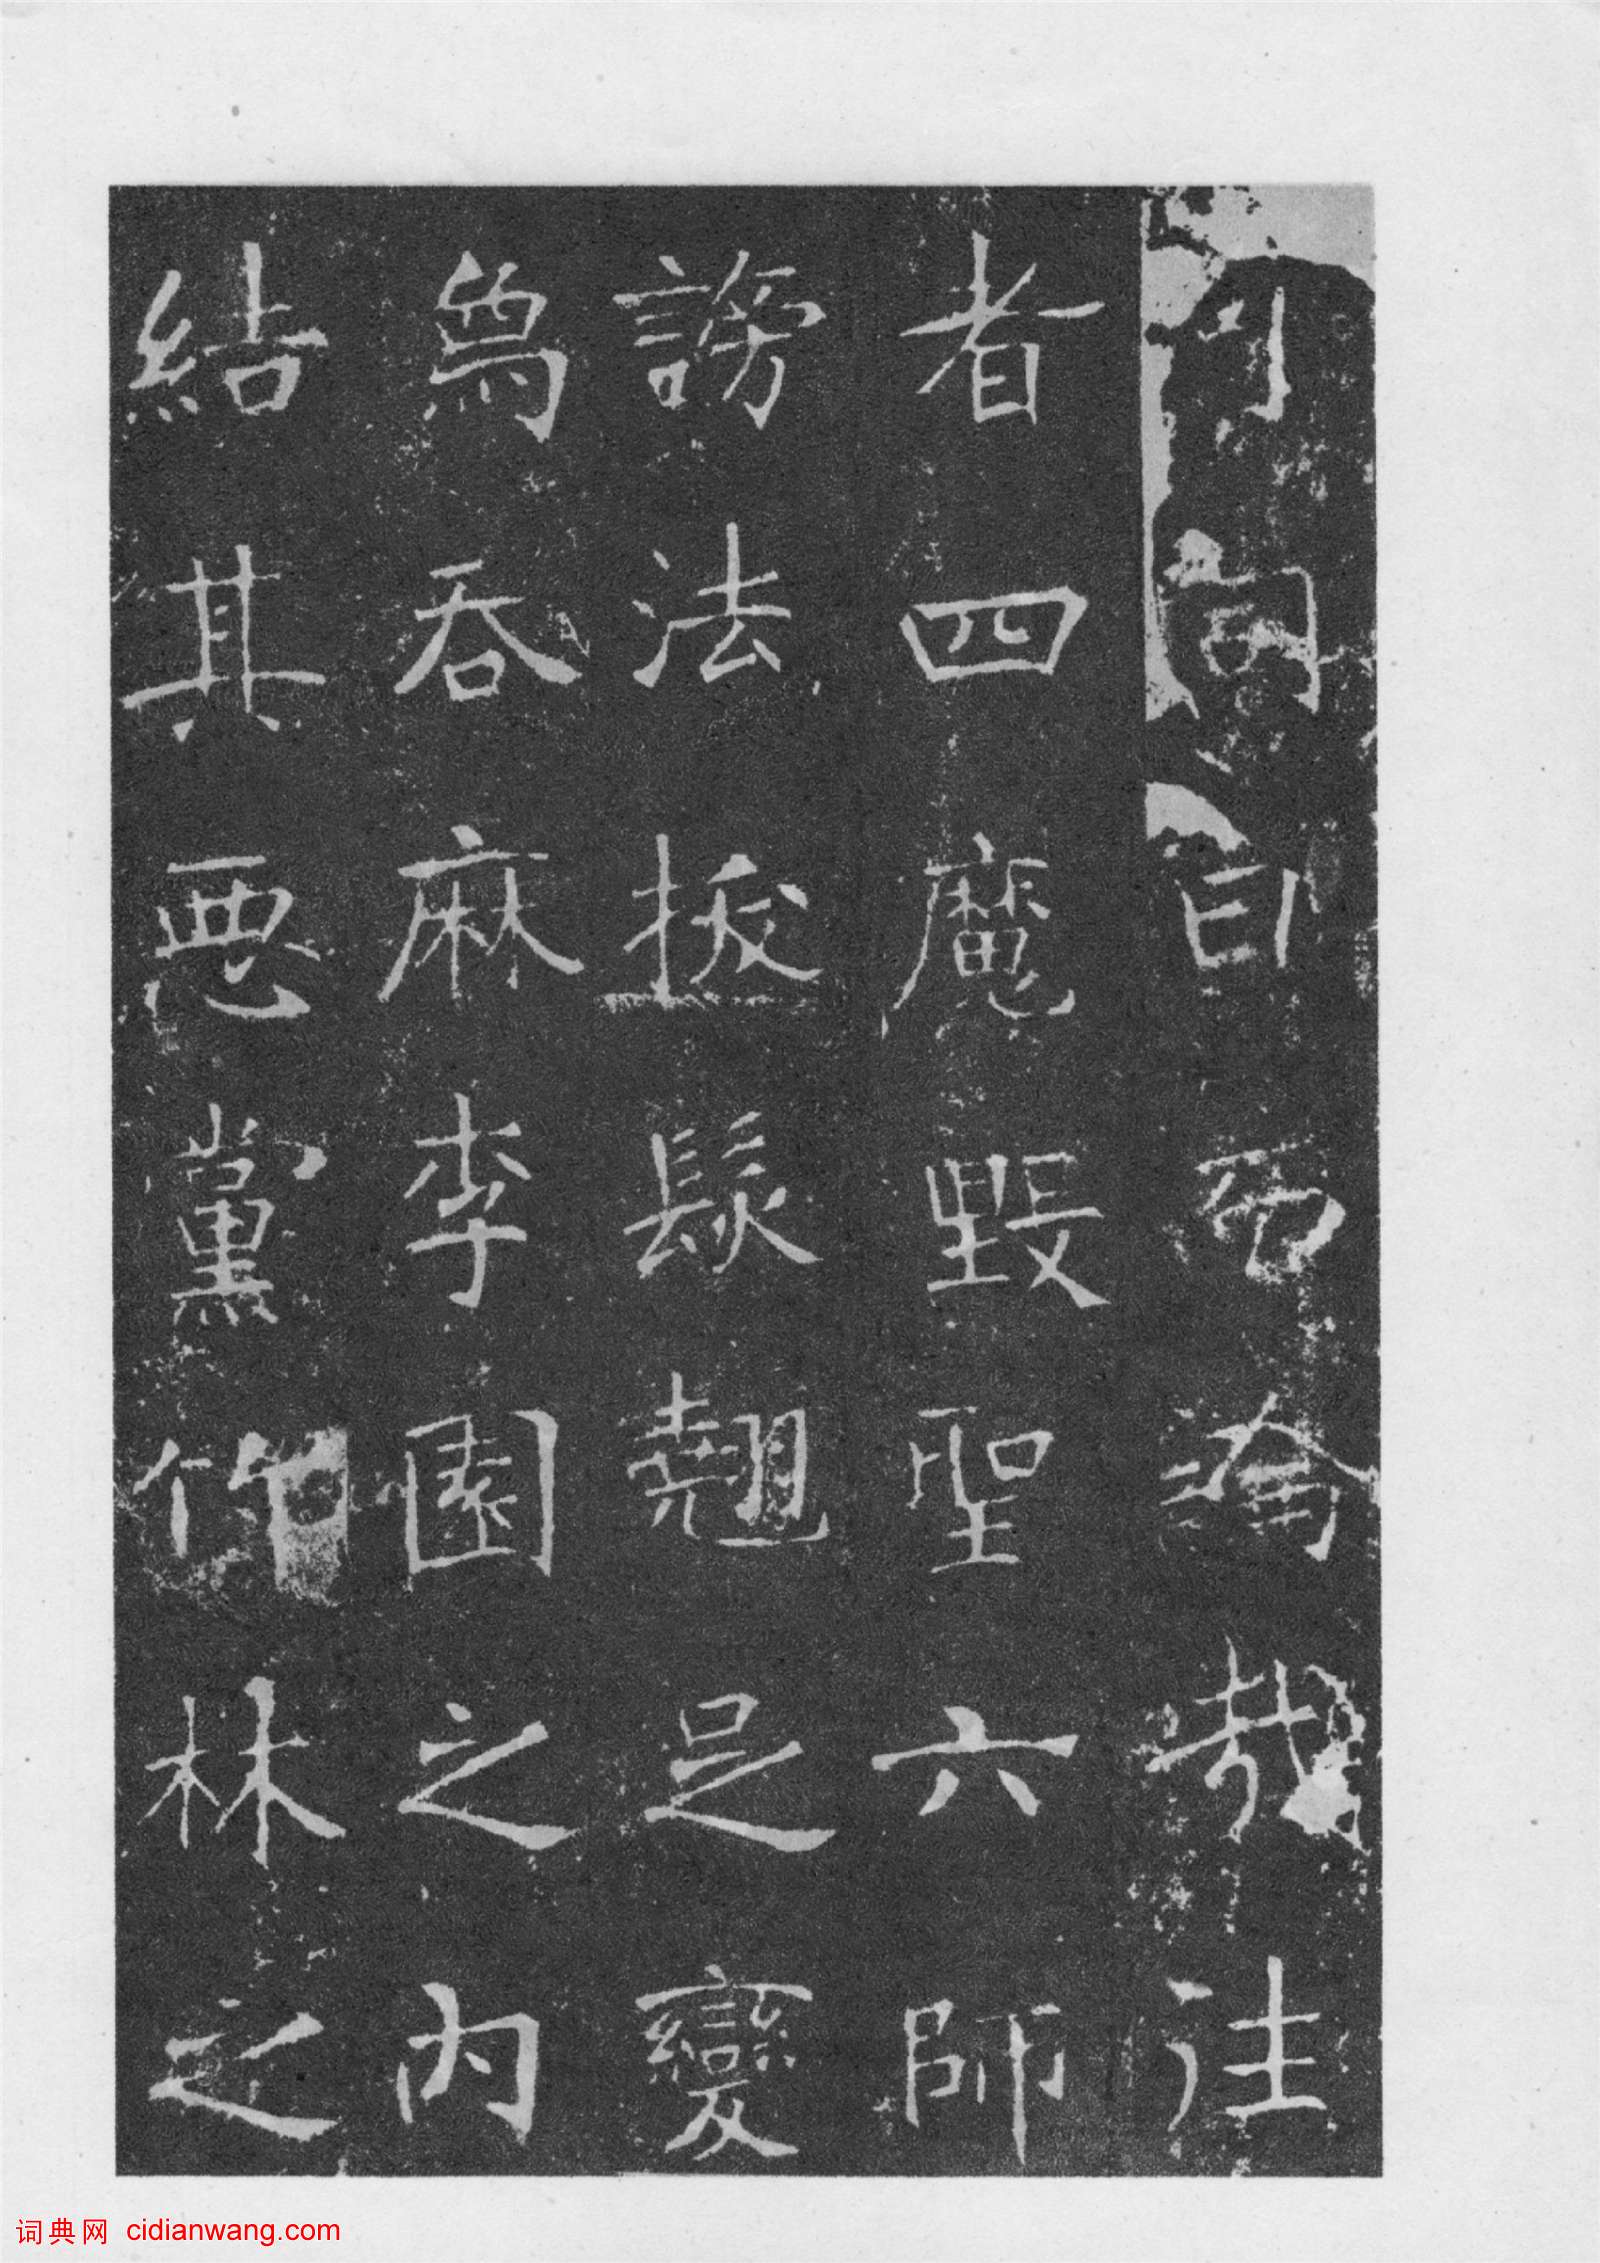 可同日而論哉往
者四魔毀聖六師
謗法拔髮翹足變
為吞麻李園之內
結其惡黨竹林之
词典网 cidianwang.com